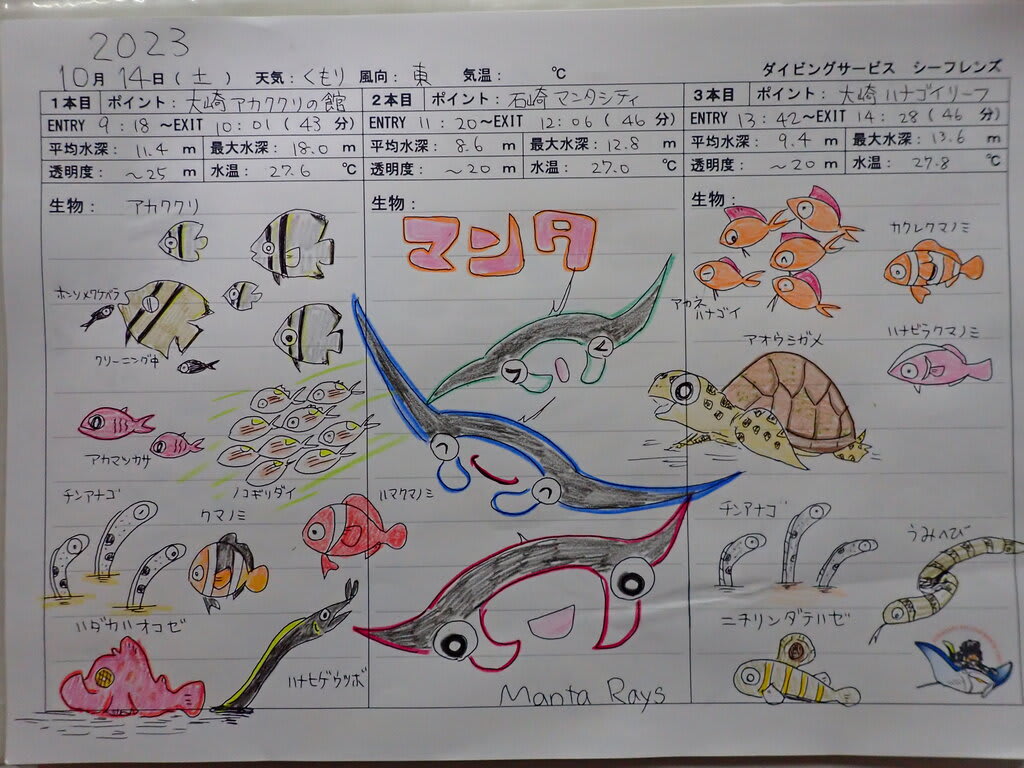 2023
10月 14日(土) 天気:くもり 風向:東 気温: ℃ ダイビングサービス シーフレンズ
1本目 ポイント:大崎アカククリの館
ENTRY 9:18~EXIT 10:01(43分)
平均水深:11.4 m 最大水深:18.0 m
透明度: ~25 m 水温: 27.6 ℃
生物: アカククリ
ホンソメワケベラ
クリーニング中
アカマツカサ
ノコギリダイ
チンアナゴ
クマノミ
ハマクマノミ
ハダカハオコゼ
ハナヒゲウツボ
2本目 ポイント:石崎マンタシティ
ENTRY 11:20~EXIT 12:06(46分)
平均水深: 8.6 m 最大水深:12.8 m
透明度: ~20 m 水温: 27.0 ℃
生物:
マンタ
Manta Rays
3本目 ポイント:大崎ハナゴイリーフ
ENTRY 13:42~EXIT 14:28(46分)
平均水深: 9.4 m 最大水深:13.6 m
透明度: ~20 m 水温: 27.8 ℃
生物:
カクレクマノミ
アカネ
ハナゴイ
アオウミガメ
ハナビラクマノミ
チンアナゴ
うみへび
ニチリンダテハゼ